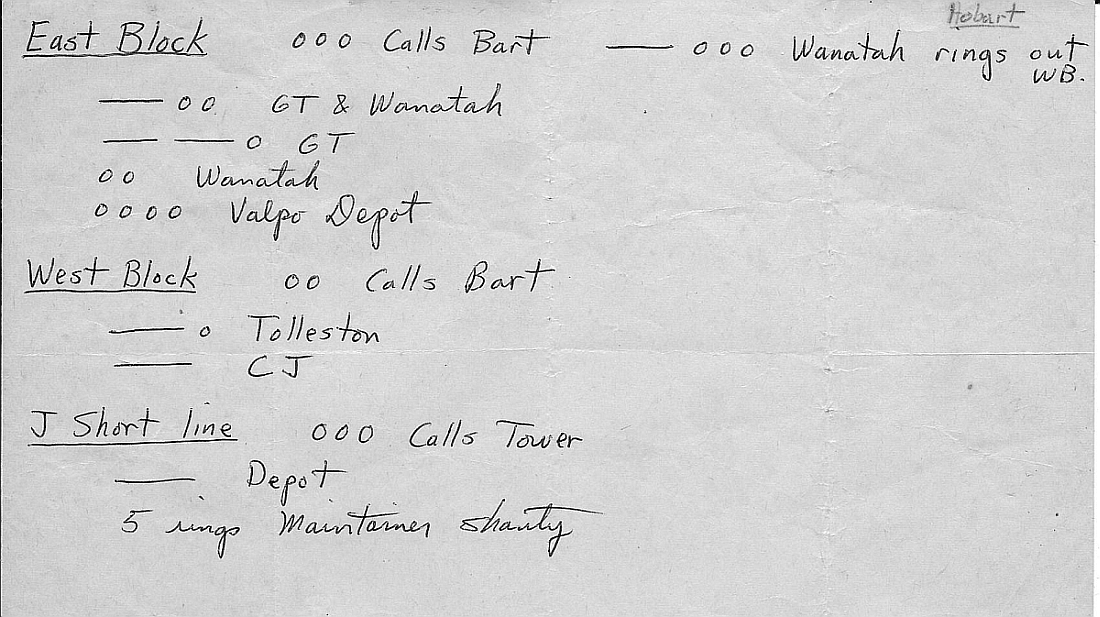 Hobart
East Block ooo Calls Bart — ooo Wanatah rings out
WB.
— oo GT & Wanatah
— — o GT
oo Wanatah
oooo Valpo Depot
West Block oo Calls Bart
— o Tolleston
— CJ
J Short line ooo Calls Tower
— Depot
5 rings Maintainer Shanty